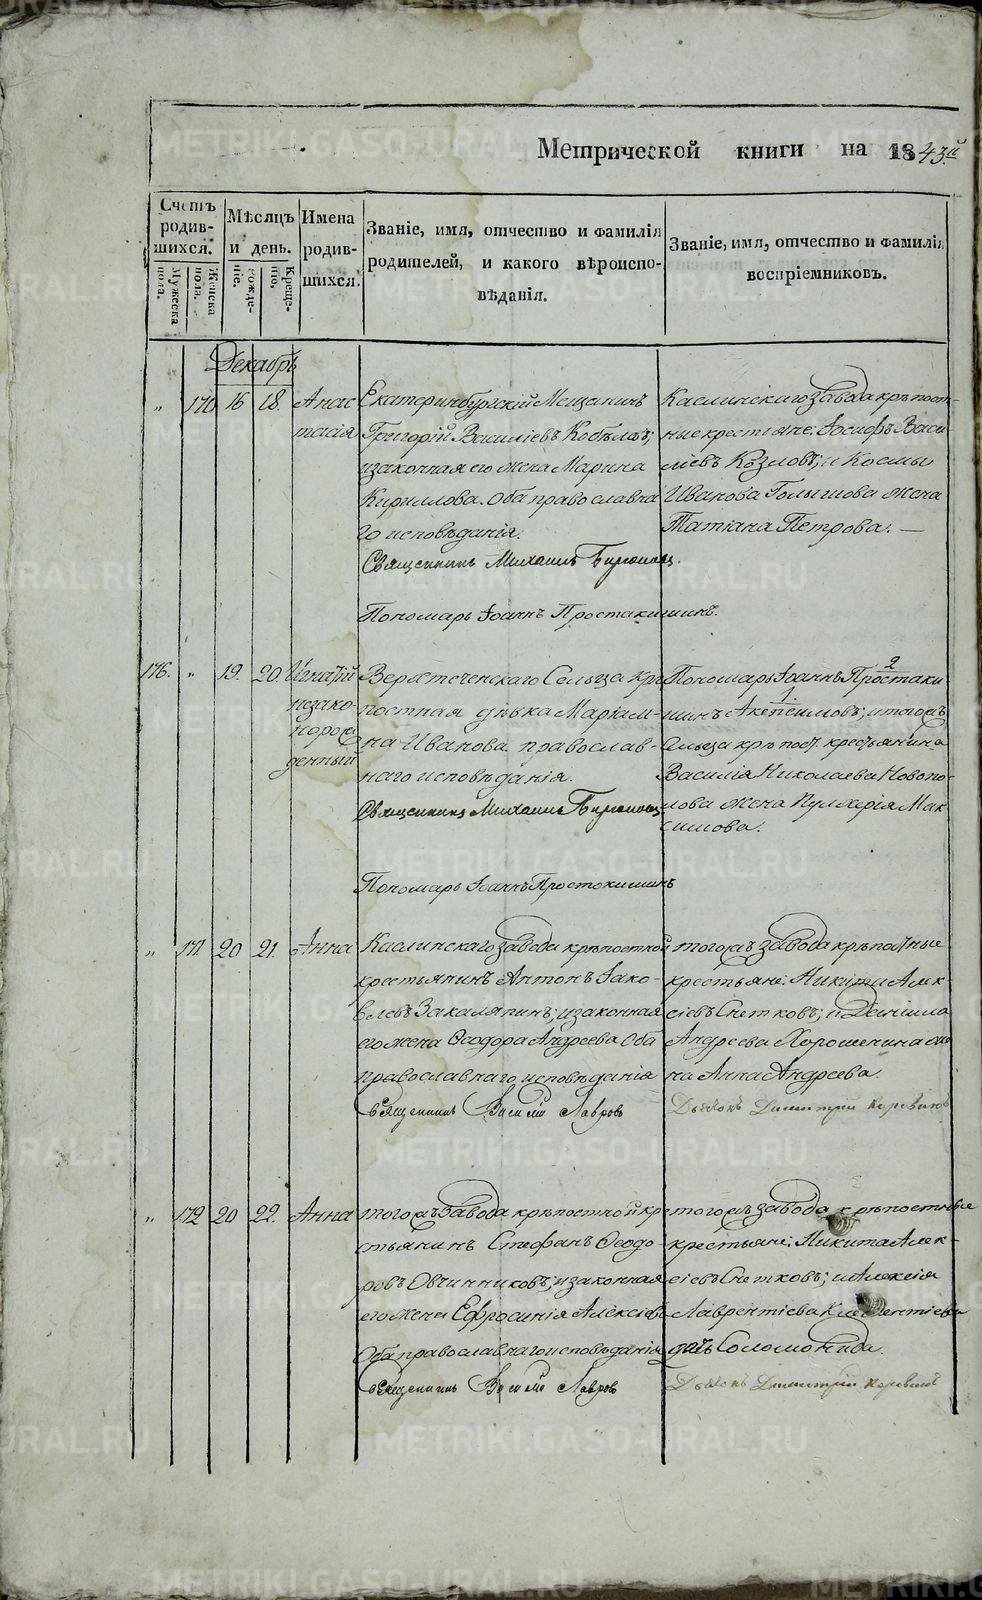 Метрической книги на 1843.й
Счетъ родившихся.
Мужеска пола.
Женска пола.
Мѣсяцъ и день.
рожденіе.
крещеніе.
Имена родившихся.
Званіе, имя, отчество и фамилія
родителей, и какого вѣроиспо-
вѣданія.
Званіе, имя, отчество и фамилія
воспріемниковъ.
Декабрь
„ 170 16 18. Анас
тасія
Екатеринбургскій Мещанинъ
Григорій Василіевъ
изаконная его жена Марина
Кириллова. Оба православна
го исповѣданія.
Священникъ Михаилъ
Пономарь Іоаннъ Простакишинъ.
Каслинскаго завода крѣпост-
ные крестьяне: Іосифъ Васи-
ліевъ Козловъ; и Космы
Иванова Голышова жена
Татіана Петрова. —
176. „ 19. 20. Игнатій
незако-
норож
денный
крѣ
постная дѣвка Маріам-
на Иванова православ-
наго исповѣданія.
Священникъ Михаилъ
Пономарь Іоаннъ Простокишинъ
2
Пономарь Іоаннъ Простаки-
1.
шинъ
сельца крѣпост. крестьянина
Василія Николаева
жена Пулхерія Мак
симова.
„ 171 20 21. Анна
Каслинскаго завода крѣпостной
крестьянинъ Антонъ Іако-
влевъ Закаляпинъ; изаконная
его жена Ѳеодора Андреева Оба
православнаго исповѣданія
Священникъ Василій Лавровъ
тогожъ завода крѣпостные
крестьяне: Никита Алек
сіевъ Снетковъ; и Даніила
Андреева Хорошенина же
на Анна Андреева.
Дьячокъ Димитрій Коровинъ
„ 172 20 22. Анна
тогожъ Завода крѣпостной кре
стьянинъ Стефанъ Ѳеодо-
ровъ Овчинниковъ; изаконная
его жена Ефросинія Алексіева
Оба православнаго исповѣданія
Священникъ Василій Лавровъ
тогожъ завода крѣпостные
крестьяне: Никита Алек-
сіевъ Снетковъ; и Алексія
Лаврентіева Клементіева
дочь Соломонида.
Дьячокъ Димитрій Коровинъ
METRIKI.GASO-URAL.RU